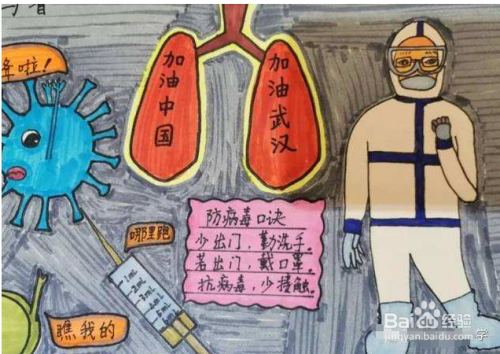 者
啦!
加油中国
加油武汉
哪里跑
防病毒口诀
少出门,勤洗手。
若出门,戴口罩。
抗病毒,少接触。
1mL
2mL
瞧我的
Baidu经验
jingyan.baidu.com
学